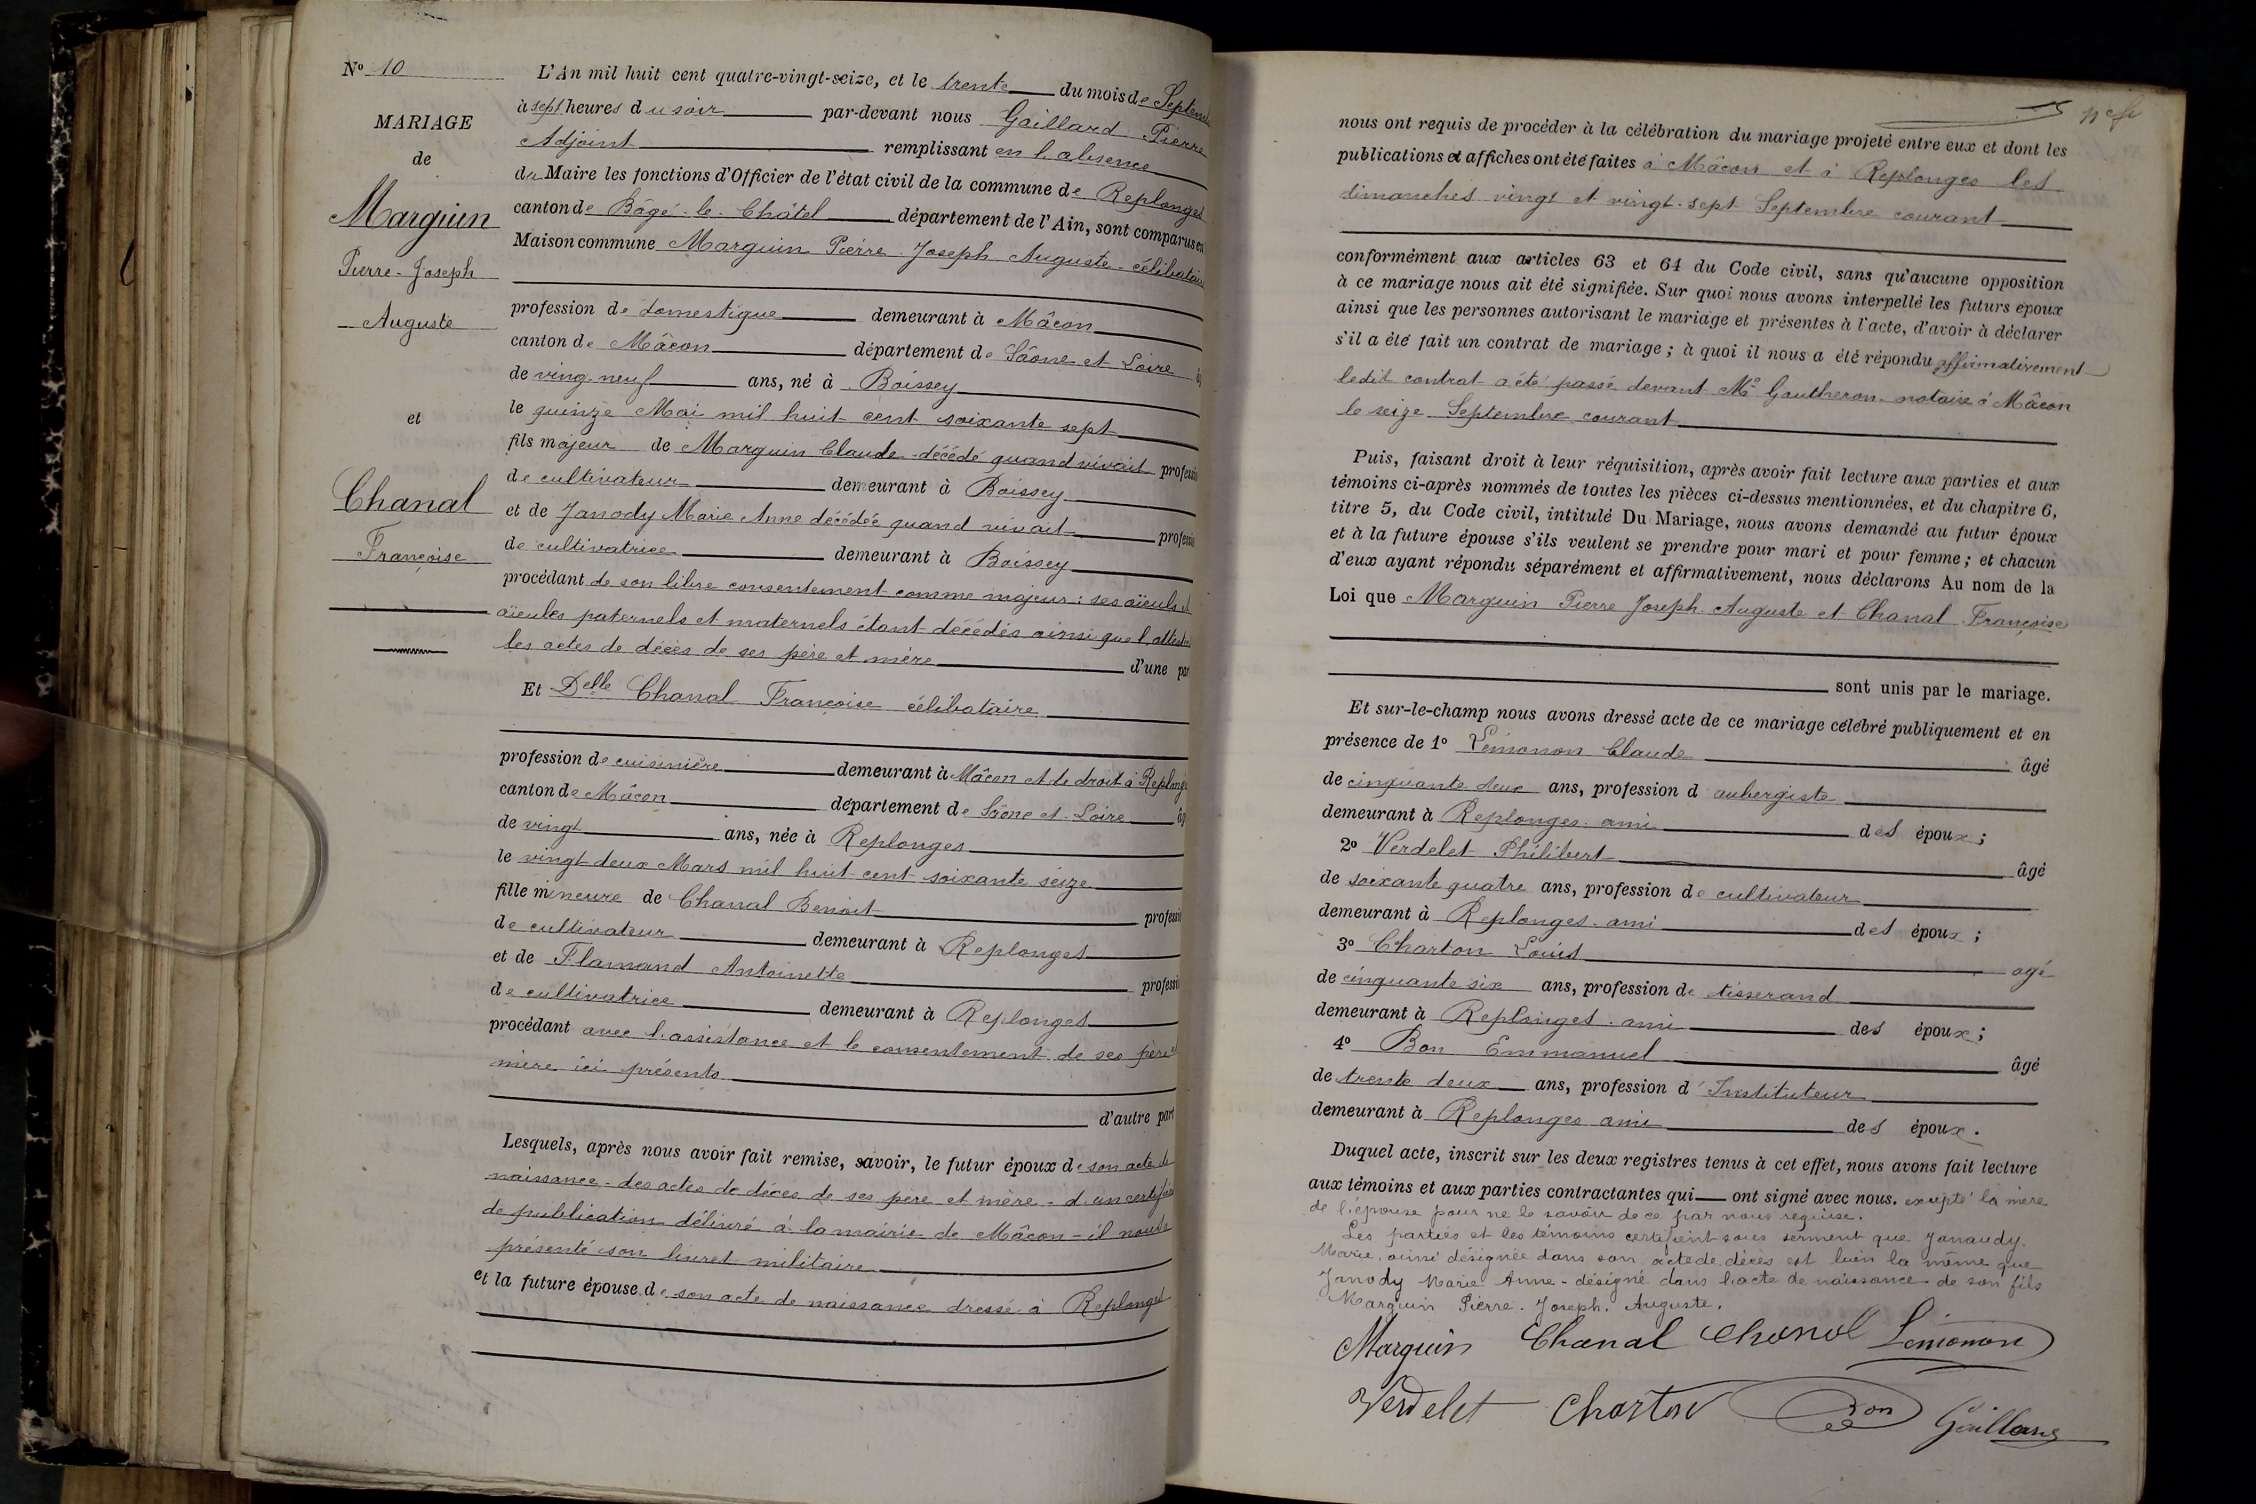 Nº 10
MARIAGE
de
Marguin
Pierre-Joseph
Auguste
et
Chanal
Françoise
L'An mil huit cent quatre-vingt-seize, et le trente du mois de Septem
à sept heures du soir par-devant nous Gaillard Pierre
Adjoint remplissant en l'absence
du Maire les fonctions d'Officier de l'état civil de la commune de Replonges
canton de Bâgé-le-Châtel département de l'Ain, sont comparus en
Maison commune Marguin Pierre-Joseph Auguste - célibataire
profession de domestique demeurant à Mâcon
canton de Mâcon département de Saône et Loire
de ving-neuf ans, né à Boissey
le quinze Mai mil huit cent soixante sept
fils majeur de Marguin Claude - décédé quand vivait profession
de cultivateur demeurant à Boissey
et de Janody Marie Anne décédée quand vivait profession
de cultivatrice demeurant à Boissey
procédant de son libre consentement comme majeur : ses aïeuls et
aïeules paternels et maternels étant décédés ainsi que l'attestent
les actes de décès de ses père et mère d'une par
Et Delle Chanal Françoise célibataire
profession de cuisinière demeurant à Mâcon et de droit à Replonges
canton de Mâcon département de Saône et Loire âg
de vingt ans, née à Replonges
le vingt deux Mars mil huit cent soixante seize
fille mineure de Chanal Benoit profession
de cultivateur demeurant à Replonges
et de Flamand Antoinette profession
de cultivatrice demeurant à Replonges
procédant avec l'assistance et le consentement de ses père et
mère ici présents
d'autre part
Lesquels, après nous avoir fait remise, savoir, le futur époux de son acte de
naissance - des actes de décès de ses père et mère - d'un certificat
de publication délivré à la mairie de Mâcon - il nous a
présenté son livret militaire
et la future épouse de son acte de naissance dressé à Replonges
nous ont requis de procéder à la célébration du mariage projeté entre eux et dont les
publications et affiches ont été faites à Mâcon et à Replonges les
dimanches vingt et vingt-sept Septembre courant
conformément aux articles 63 et 64 du Code civil, sans qu'aucune opposition
à ce mariage nous ait été signifiée. Sur quoi nous avons interpellé les futurs epoux
ainsi que les personnes autorisant le mariage et présentes à l'acte, d'avoir à déclarer
s'il a été fait un contrat de mariage ; à quoi il nous a été répondu affirmativement
ledit contrat a été passé devant Me Gautheron notaire à Mâcon
le seize Septembre courant
Puis, faisant droit à leur réquisition, après avoir fait lecture aux parties et aux
témoins ci-après nommés de toutes les pièces ci-dessus mentionnées, et du chapitre 6,
titre 5, du Code civil, intitulé Du Mariage, nous avons demandé au futur époux
et à la future épouse s'ils veulent se prendre pour mari et pour femme ; et chacun
d'eux ayant répondu séparément et affirmativement, nous déclarons Au nom de la
Loi que Marguin Pierre Joseph Auguste et Chanal Françoise
sont unis par le mariage.
Et sur-le-champ nous avons dressé acte de ce mariage célébré publiquement et en
présence de 1º Lémonon Claude âgé
de cinquante deux ans, profession d'aubergiste
demeurant à Replonges ami des époux ;
2º Verdelet Philibert âgé
de soixante quatre ans, profession de cultivateur
demeurant à Replonges ami des époux ;
3º Charton Louis agé
de cinquante six ans, profession de tisserand
demeurant à Replonges ami des époux ;
4º Bon Emmanuel âgé
de trente deux ans, profession d'Instituteur
demeurant à Replonges ami des époux.
Duquel acte, inscrit sur les deux registres tenus à cet effet, nous avons fait lecture
aux témoins et aux parties contractantes qui ont signé avec nous. excepté la mère
de l'épouse pour ne le savoir de ce par nous requise.
Les parties et les témoins certifient sous serment que Janaudy
Marie, ainsi désignée dans son acte de décès est bien la même que
Janody Marie Anne - désigné dans l'acte de naissance de son fils
Marguin Pierre. Joseph. Auguste.
Marguin Chanal Chanal Lémonon
Verdelet Charton Bon Gaillard